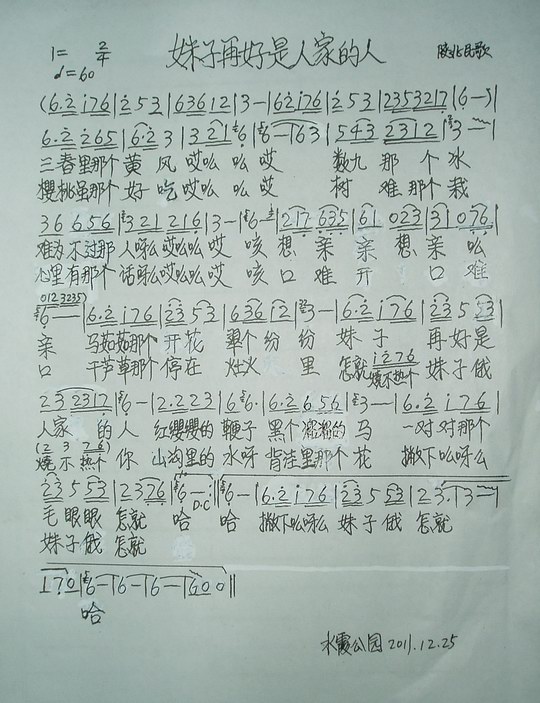 妹子再好是人家的人
1= 2/4 陕北民歌
♩=60
(6·2̇ i76 |2̇53 |63612 |3— |62̇i76 |2̇53 |2353217 |6—)|
6·2̇ 265 |6·2̇3 |3216 |6—163 |543 2312 |3—
三春里那个黄风哎么么哎 数九那个冰
樱桃虽那个好吃哎么么哎 树难那个栽
36 656 |321 216 |3— |6— |217 635 |61 023 |31 076 |
难为不过那人呀么哎么么哎 咳想亲亲想亲么
心里有那个话呀么哎么么哎 咳口难开口难
0123235
6— |6·2̇ i76 |2̇3 53 |636 i2 |3— |6·2̇ i76 |2̇3 5 53 |
亲 马茹茹那个开花 翠个纷纷 妹子 再好是
口 干芦草那个停在 灶火里 怎就 i276 烧不热个 妹子俄
23 2317 |6— |2·223 |66· |6·2̇ 656 |3— |6·2̇ i76 |
人家的人 红缨缨的鞭子黑个溜溜的马 一对对那个
(2 3 76)
烧不热个你 山沟里的水呀背洼里那个花 撇下么呀么
2̇3 5 53 |2376 |6— D.C :|6— |6·2̇ i76 |2̇3 5 53 |23·13—|
毛眼眼怎就 哈 哈 撇下么呀么妹子俄 怎就
妹子俄 怎就
170 |6—|6—|6—|600‖
哈
水霞公园 2011.12.25